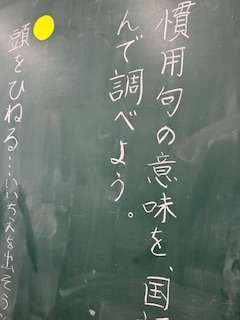 慣用句の意味を、国
んで調べよう。
頭をひねる…いい考えを出そう